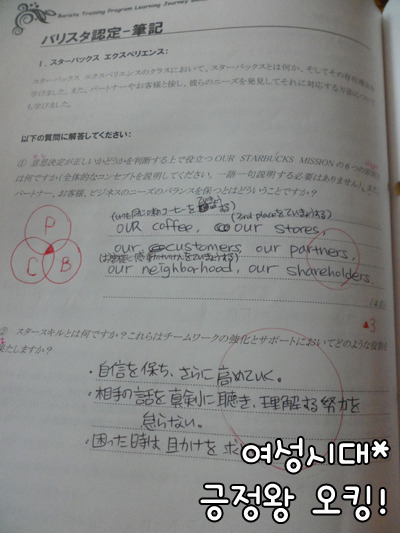 Barista Training Program Learning Journey
バリスタ認定–筆記
1. スターバックス エクスペリエンス:
スターバックス エクスペリエンスのクラスにおいて、スターバックスとは何か、そしてその
学びました。また、パートナーやお客様と接し、彼らのニーズを発見してそれに対応する方法について
も学びました。
以下の質問に解答してください:
① 意思決定が正しいかどうかを判断する上で役立つ OUR STARBUCKS MISSION の 6 つの
は何ですか(全体的なコンセプトを説明してください。一語一句説明する必要はありません)。また、
パートナー、お客様、ビジネスのニーズのバランスを保つとはどういうことですか?
(3rd placeをていきょうする)
our coffee, our stores,
our customers, our partners,
our neighborhood, our shareholders.
P
C B
▲3
② スタースキルとは何ですか?これらはチームワークの強化とサポートにおいてどのような役割を
果たしますか?
・自信を保ち、さらに高めていく。
・相手の話を真剣に聴き、理解する努力を
怠らない。
・困った時は 助けを求
여성시대*
긍정왕 오킹!